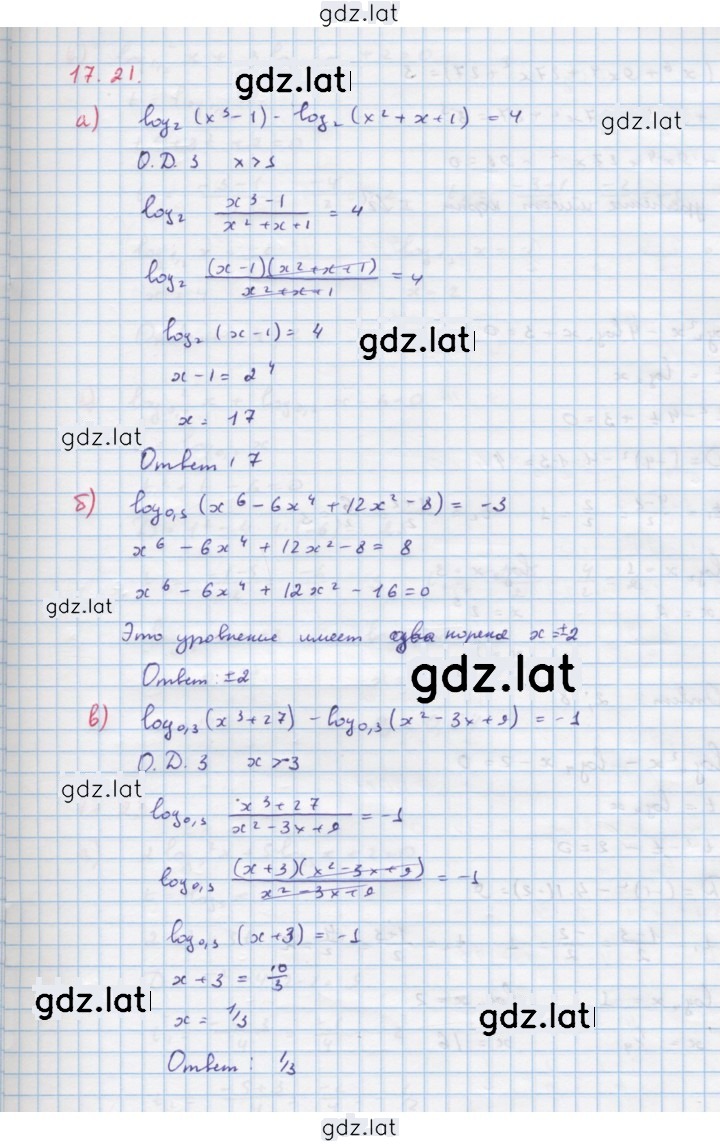 gdz.lat
17.21.
gdz.lat
а) log₂ (x³ - 1) - log₂ (x² + x + 1) = 4
gdz.lat
О.Д.З x > 1
log₂ (x³ - 1)/(x² + x + 1) = 4
log₂ ((x - 1)(x² + x + 1))/(x² + x + 1) = 4
log₂ (x - 1) = 4
gdz.lat
x - 1 = 2⁴
x = 17
gdz.lat
Ответ 17
б) log₀,₅ (x⁶ - 6x⁴ + 12x² - 8) = -3
x⁶ - 6x⁴ + 12x² - 8 = 8
x⁶ - 6x⁴ + 12x² - 16 = 0
gdz.lat
Это уровнение имеет два корена x = ±2
Ответ: ±2
gdz.lat
в) log₀,₃ (x³ + 27) - log₀,₃ (x² - 3x + 9) = -1
О.Д.З x > -3
gdz.lat
log₀,₃ (x³ + 27)/(x² - 3x + 9) = -1
log₀,₃ ((x + 3)(x² - 3x + 9))/(x² - 3x + 9) = -1
log₀,₃ (x + 3) = -1
x + 3 = 10/3
gdz.lat
x = 1/3
gdz.lat
Ответ: 1/3
gdz.lat